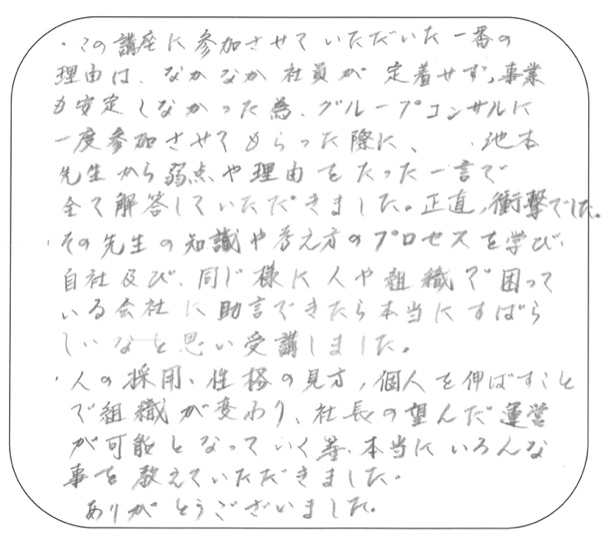 ・この講座に参加させていただいた一番の
理由は、なかなか社員が定着せず、事業
も安定しなかった為、グループコンサルに
一度参加させてもらった際に、池本
先生から弱点や理由をたった一言で
全て解答していただきました。正直、衝撃でした。
・その先生の知識や考え方のプロセスを学び、
自社及び、同じ様に人や組織で困って
いる会社に助言できたら本当にすばら
しいなと思い受講しました。
・人の採用、性格の見方、個人を伸ばすこと
で組織が変わり、社長の望んだ運営
が可能となっていく等、本当にいろんな
事を教えていただきました。
ありがとうございました。